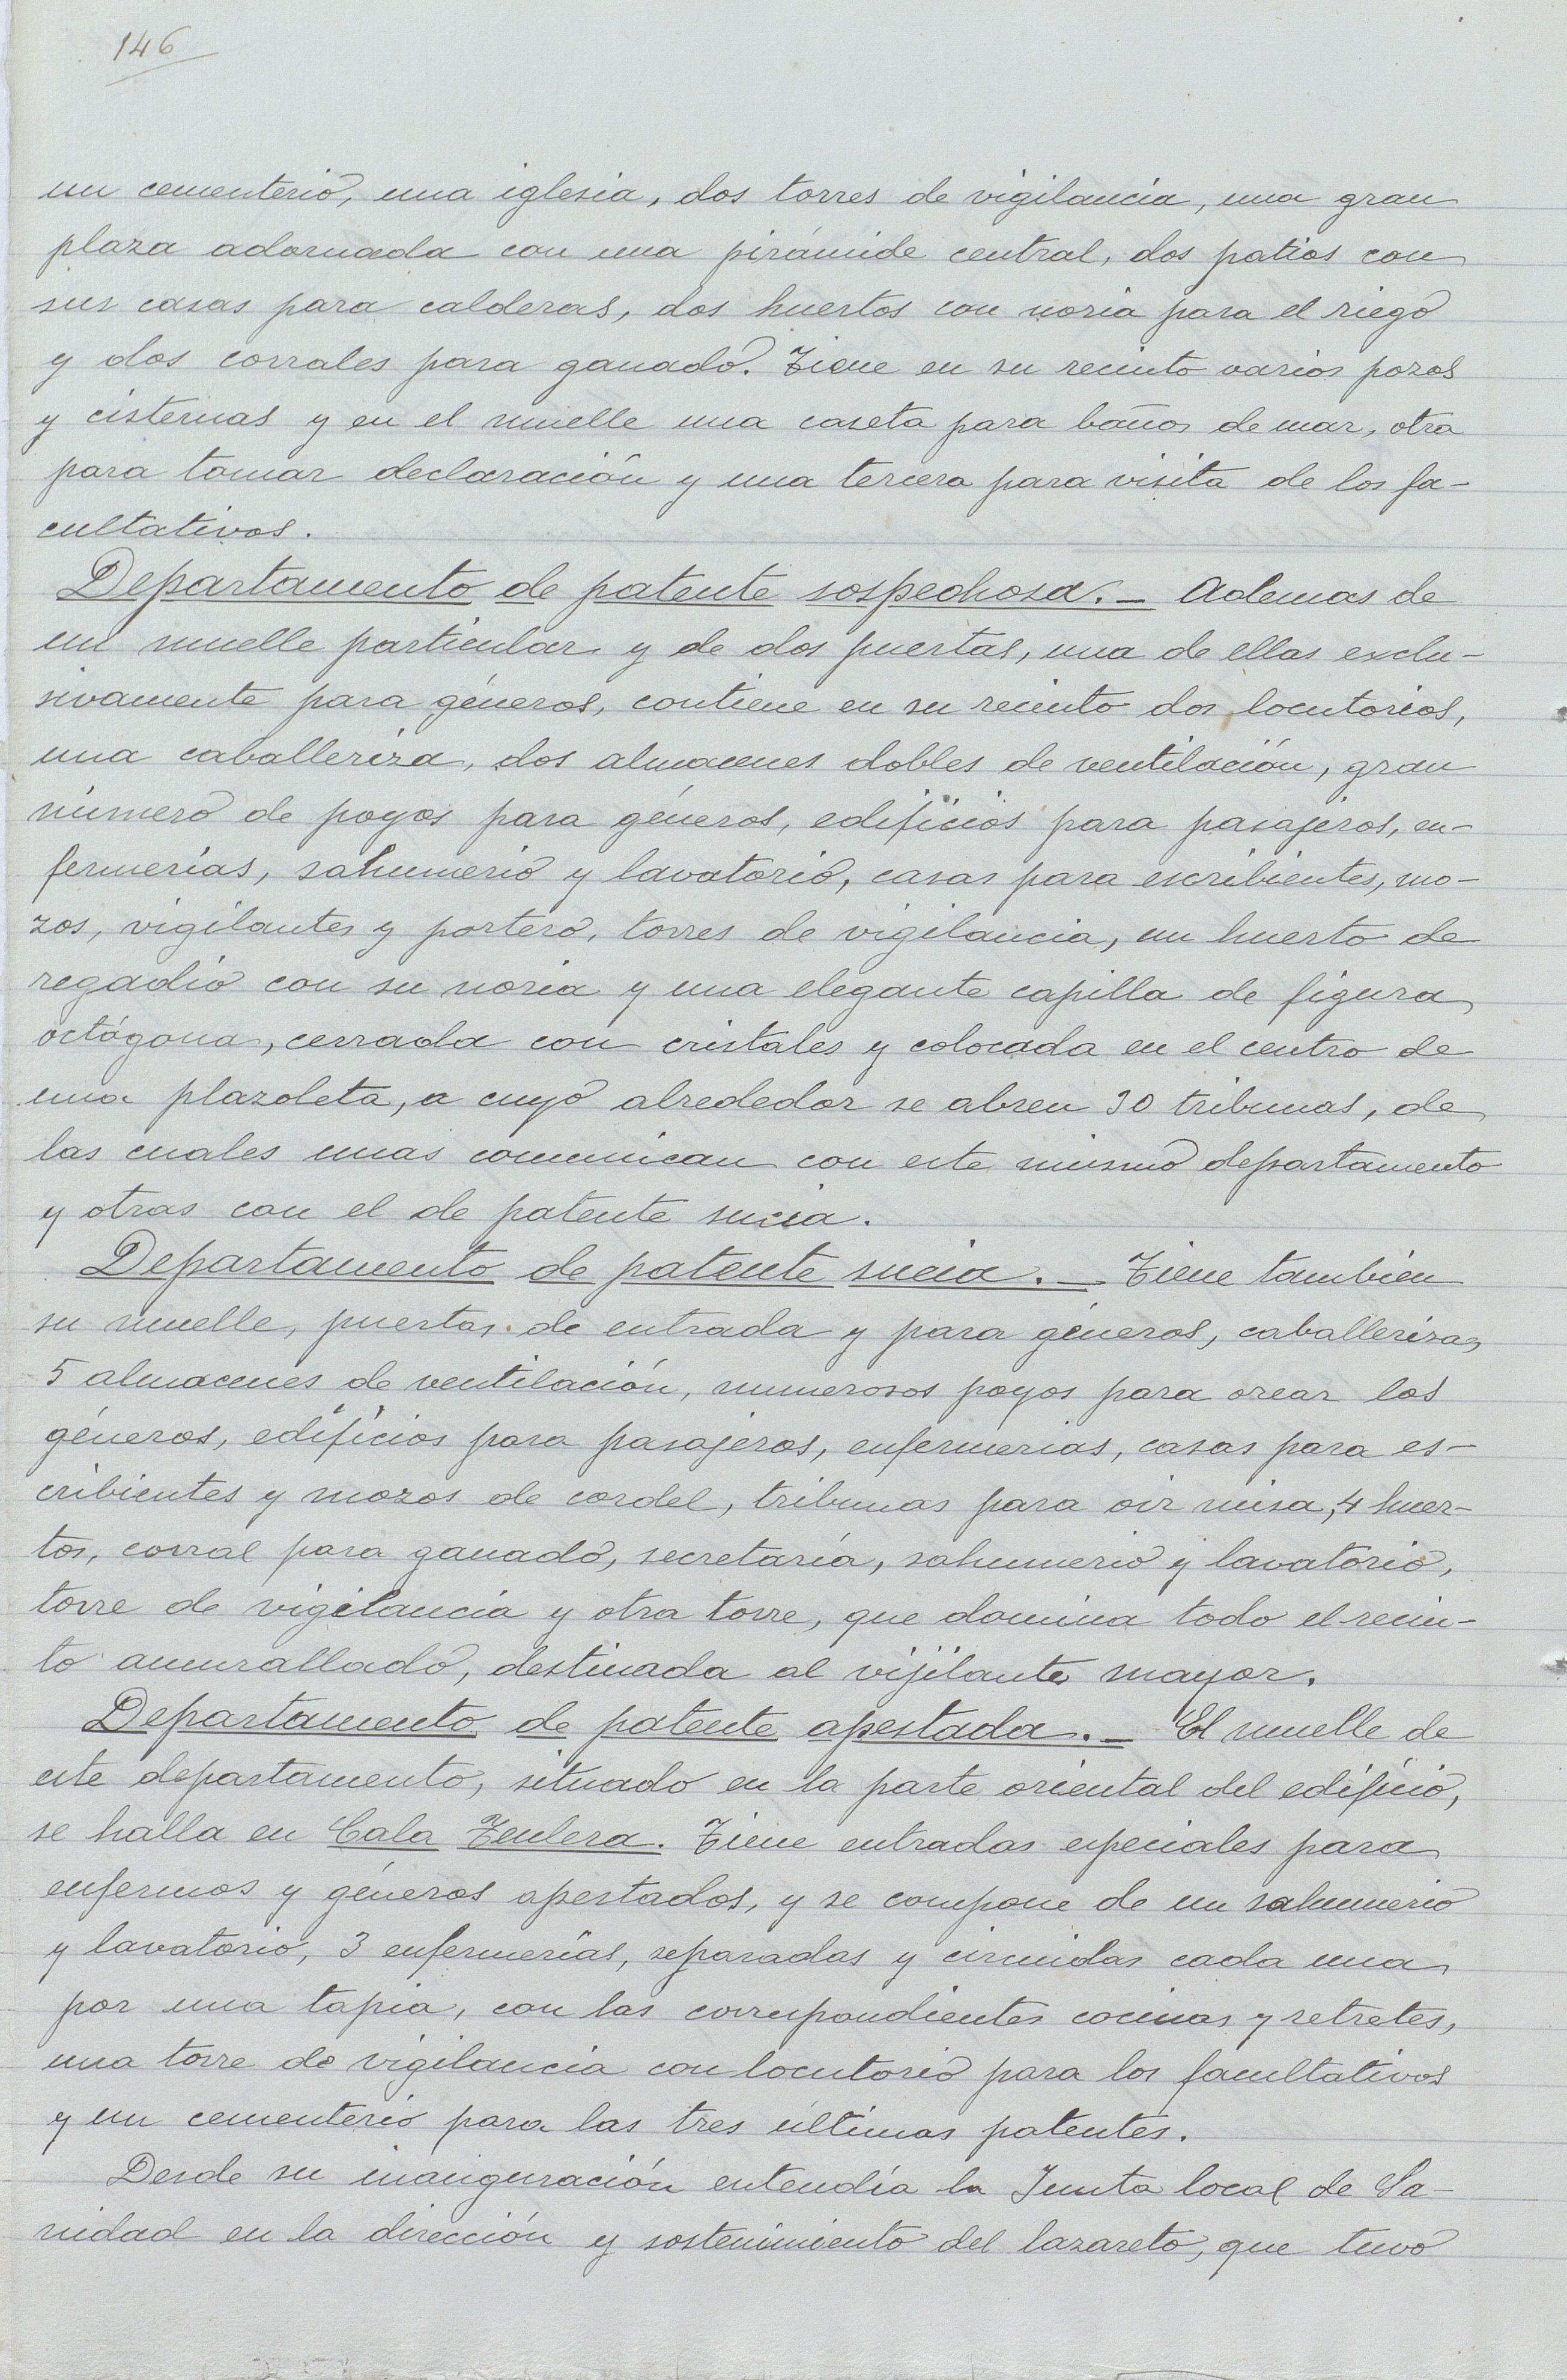 146
un cementerio, una iglesia, dos torres de vigilancia, una gran
plaza adornada con una pirámide central, dos patios con
sus casas para calderas, dos huertos con noria para el riego
y dos corrales para ganado. Tiene en su recinto varios pozos
y cisternas y en el muelle una caseta para baños de mar, otra
para tomar declaración y una tercera para visita de los fa-
cultativos.
Departamento de patente sospechosa. — Ademas de
un muelle particular y de dos puertas, una de ellas exclu-
sivamente para géneros, contiene en su recinto dos locutorios,
una caballeriza, dos almacenes dobles de ventilación, gran
número de poyos para géneros, edificios para pasajeros, en-
fermerías, sahumerio y lavatorio, casas para escribientes, mo-
zos, vigilantes y portero, torres de vigilancia, un huerto de
regadío con su noria y una elegante capilla de figura
octógona, cerrada con cristales y colocada en el centro de
una plazoleta, a cuyo alrededor se abren 30 tribunas, de
las cuales unas comunican con este mismo departamento
y otras con el de patente sucia.
Departamento de patente sucia. — Tiene también
su muelle, puertas de entrada y para géneros, caballerizas,
5 almacenes de ventilación, numerosos poyos para orear los
géneros, edificios para pasajeros, enfermerias, casas para es-
cribientes y mozos de cordel, tribunas para oir misa, 4 huer-
tos, corral para ganado, secretaría, sahumerio y lavatorio,
torre de vigilancia y otra torre, que domina todo el recin-
to amurallado, destinada al vijilante mayor.
Departamento de patente apestada. — El muelle de
este departamento, situado en la parte oriental del edificio,
se halla en Cala Teulera. Tiene entradas especiales para
enfermos y géneros apestados, y se compone de un sahumerio
y lavatorio, 3 enfermerías, separadas y circuidas cada una
por una tapia, con las correspondientes cocinas y retretes,
una torre de vigilancia con locutorio para los facultativos
y un cementerio para las tres últimas patentes.
Desde su inauguración entendía la Junta local de Sa-
nidad en la dirección y sostenimiento del lazareto, que tuvo